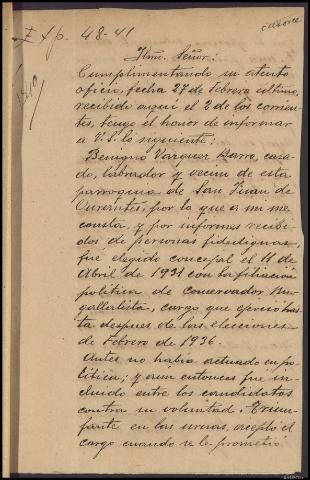 Exp. 48-41
catorce
1210
Iltmo. Señor:
Cumplimentando su atento
oficio, fecha 27 de Febrero último,
recibido aquí el 2 de los corrien-
tes, tengo el honor de informar
a V.S. lo siguiente:
Benigno Vazquez Barro, casa-
do, labrador y vecino de esta
parroquia de San Juan de
por lo que a mi me
consta, y por informes recibi-
dos de personas fidedignas,
fué elegido concejal el 11 de
Abril de 1931 con la filiación
política de Conservador Bu-
gallalista, cargo que ejerció has-
ta despues de las elecciones
de Febrero de 1936.
Antes no había actuado en po-
lítica; y aun entonces fué in-
cluido entre los candidatos
contra su voluntad. Triun-
fante en las urnas, aceptó el
cargo cuando se le prometió